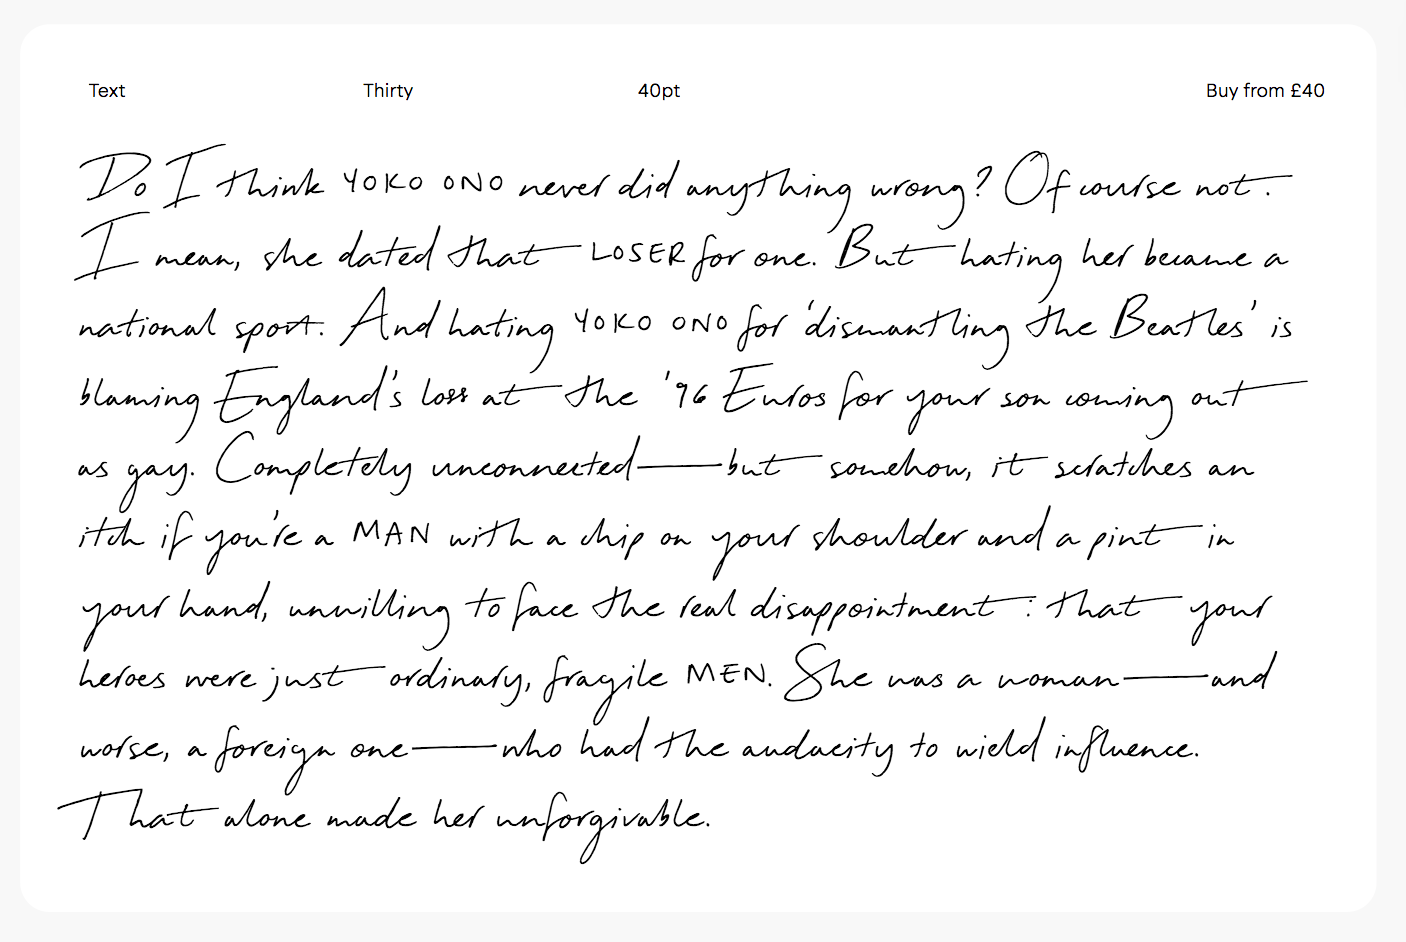 Text Thirty 40pt Buy from £40
Do I think YOKO ONO never did anything wrong? Of course not.
I mean, she dated that LOSER for one. But hating her became a
national sport. And hating YOKO ONO for 'dismantling the Beatles' is
blaming England's loss at the '96 Euros for your son coming out
as gay. Completely unconnected—but somehow, it scratches an
itch if you're a MAN with a chip on your shoulder and a pint in
your hand, unwilling to face the real disappointment: that your
heroes were just ordinary, fragile MEN. She was a woman—and
worse, a foreign one—who had the audacity to wield influence.
That alone made her unforgivable.